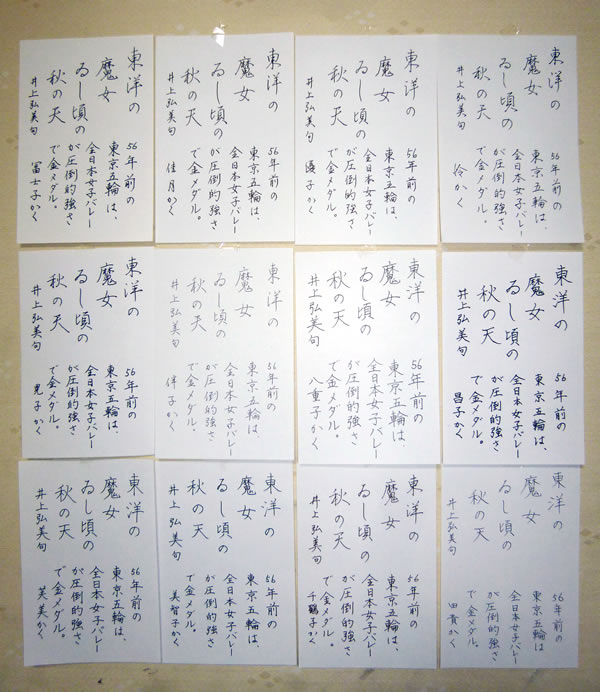 東洋の
魔女
ゐし頃の
秋の天
井上弘美句
56年前の
東京五輪は、
全日本女子バレー
が圧倒的強さ
で金メダル。
かく
東洋の
魔女
ゐし頃の
秋の天
井上弘美句
56年前の
東京五輪は、
全日本女子バレー
が圧倒的強さ
で金メダル。
優子かく
東洋の
魔女
ゐし頃の
秋の天
井上弘美句
56年前の
東京五輪は、
全日本女子バレー
が圧倒的強さ
で金メダル。
佳月かく
東洋の
魔女
ゐし頃の
秋の天
井上弘美句
56年前の
東京五輪は、
全日本女子バレー
が圧倒的強さ
で金メダル。
冨士子かく
東洋の
魔女
ゐし頃の
秋の天
井上弘美句
56年前の
東京五輪は、
全日本女子バレー
が圧倒的強さ
で金メダル。
昌子かく
東洋の
魔女
ゐし頃の
秋の天
井上弘美句
56年前の
東京五輪は、
全日本女子バレー
が圧倒的強さ
で金メダル。
八重子かく
東洋の
魔女
ゐし頃の
秋の天
井上弘美句
56年前の
東京五輪は、
全日本女子バレー
が圧倒的強さ
で金メダル。
かく
東洋の
魔女
ゐし頃の
秋の天
井上弘美句
56年前の
東京五輪は、
全日本女子バレー
が圧倒的強さ
で金メダル。
晃子かく
東洋の
魔女
ゐし頃の
秋の天
井上弘美句
56年前の
東京五輪は、
全日本女子バレー
が圧倒的強さ
で金メダル。
由貴かく
東洋の
魔女
ゐし頃の
秋の天
井上弘美句
56年前の
東京五輪は、
全日本女子バレー
が圧倒的強さ
で金メダル。
千鶴子かく
東洋の
魔女
ゐし頃の
秋の天
井上弘美句
56年前の
東京五輪は、
全日本女子バレー
が圧倒的強さ
で金メダル。
美智子かく
東洋の
魔女
ゐし頃の
秋の天
井上弘美句
56年前の
東京五輪は、
全日本女子バレー
が圧倒的強さ
で金メダル。
芙美かく